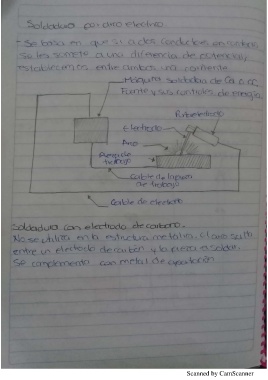 Soldadura por arco electrico.
- Se basa en que si a dos conductores en contacto
se les somete a una diferencia de potencial,
establecemos entre ambos una corriente.
Máquina soldadora de Ca o cc
Fuente y sus controles de energía
Portaelectrodo
Electrodo
Arco
Pieza de
trabajo
Cable de la pieza
de trabajo
Cable de electrodo
Soldadura con electrodo de carbono.
No se utiliza en la estructura metalica, el arco salta
entre un electrodo de carbón y la pieza a soldar.
Se complementa con metal de aportación.
Scanned by CamScanner